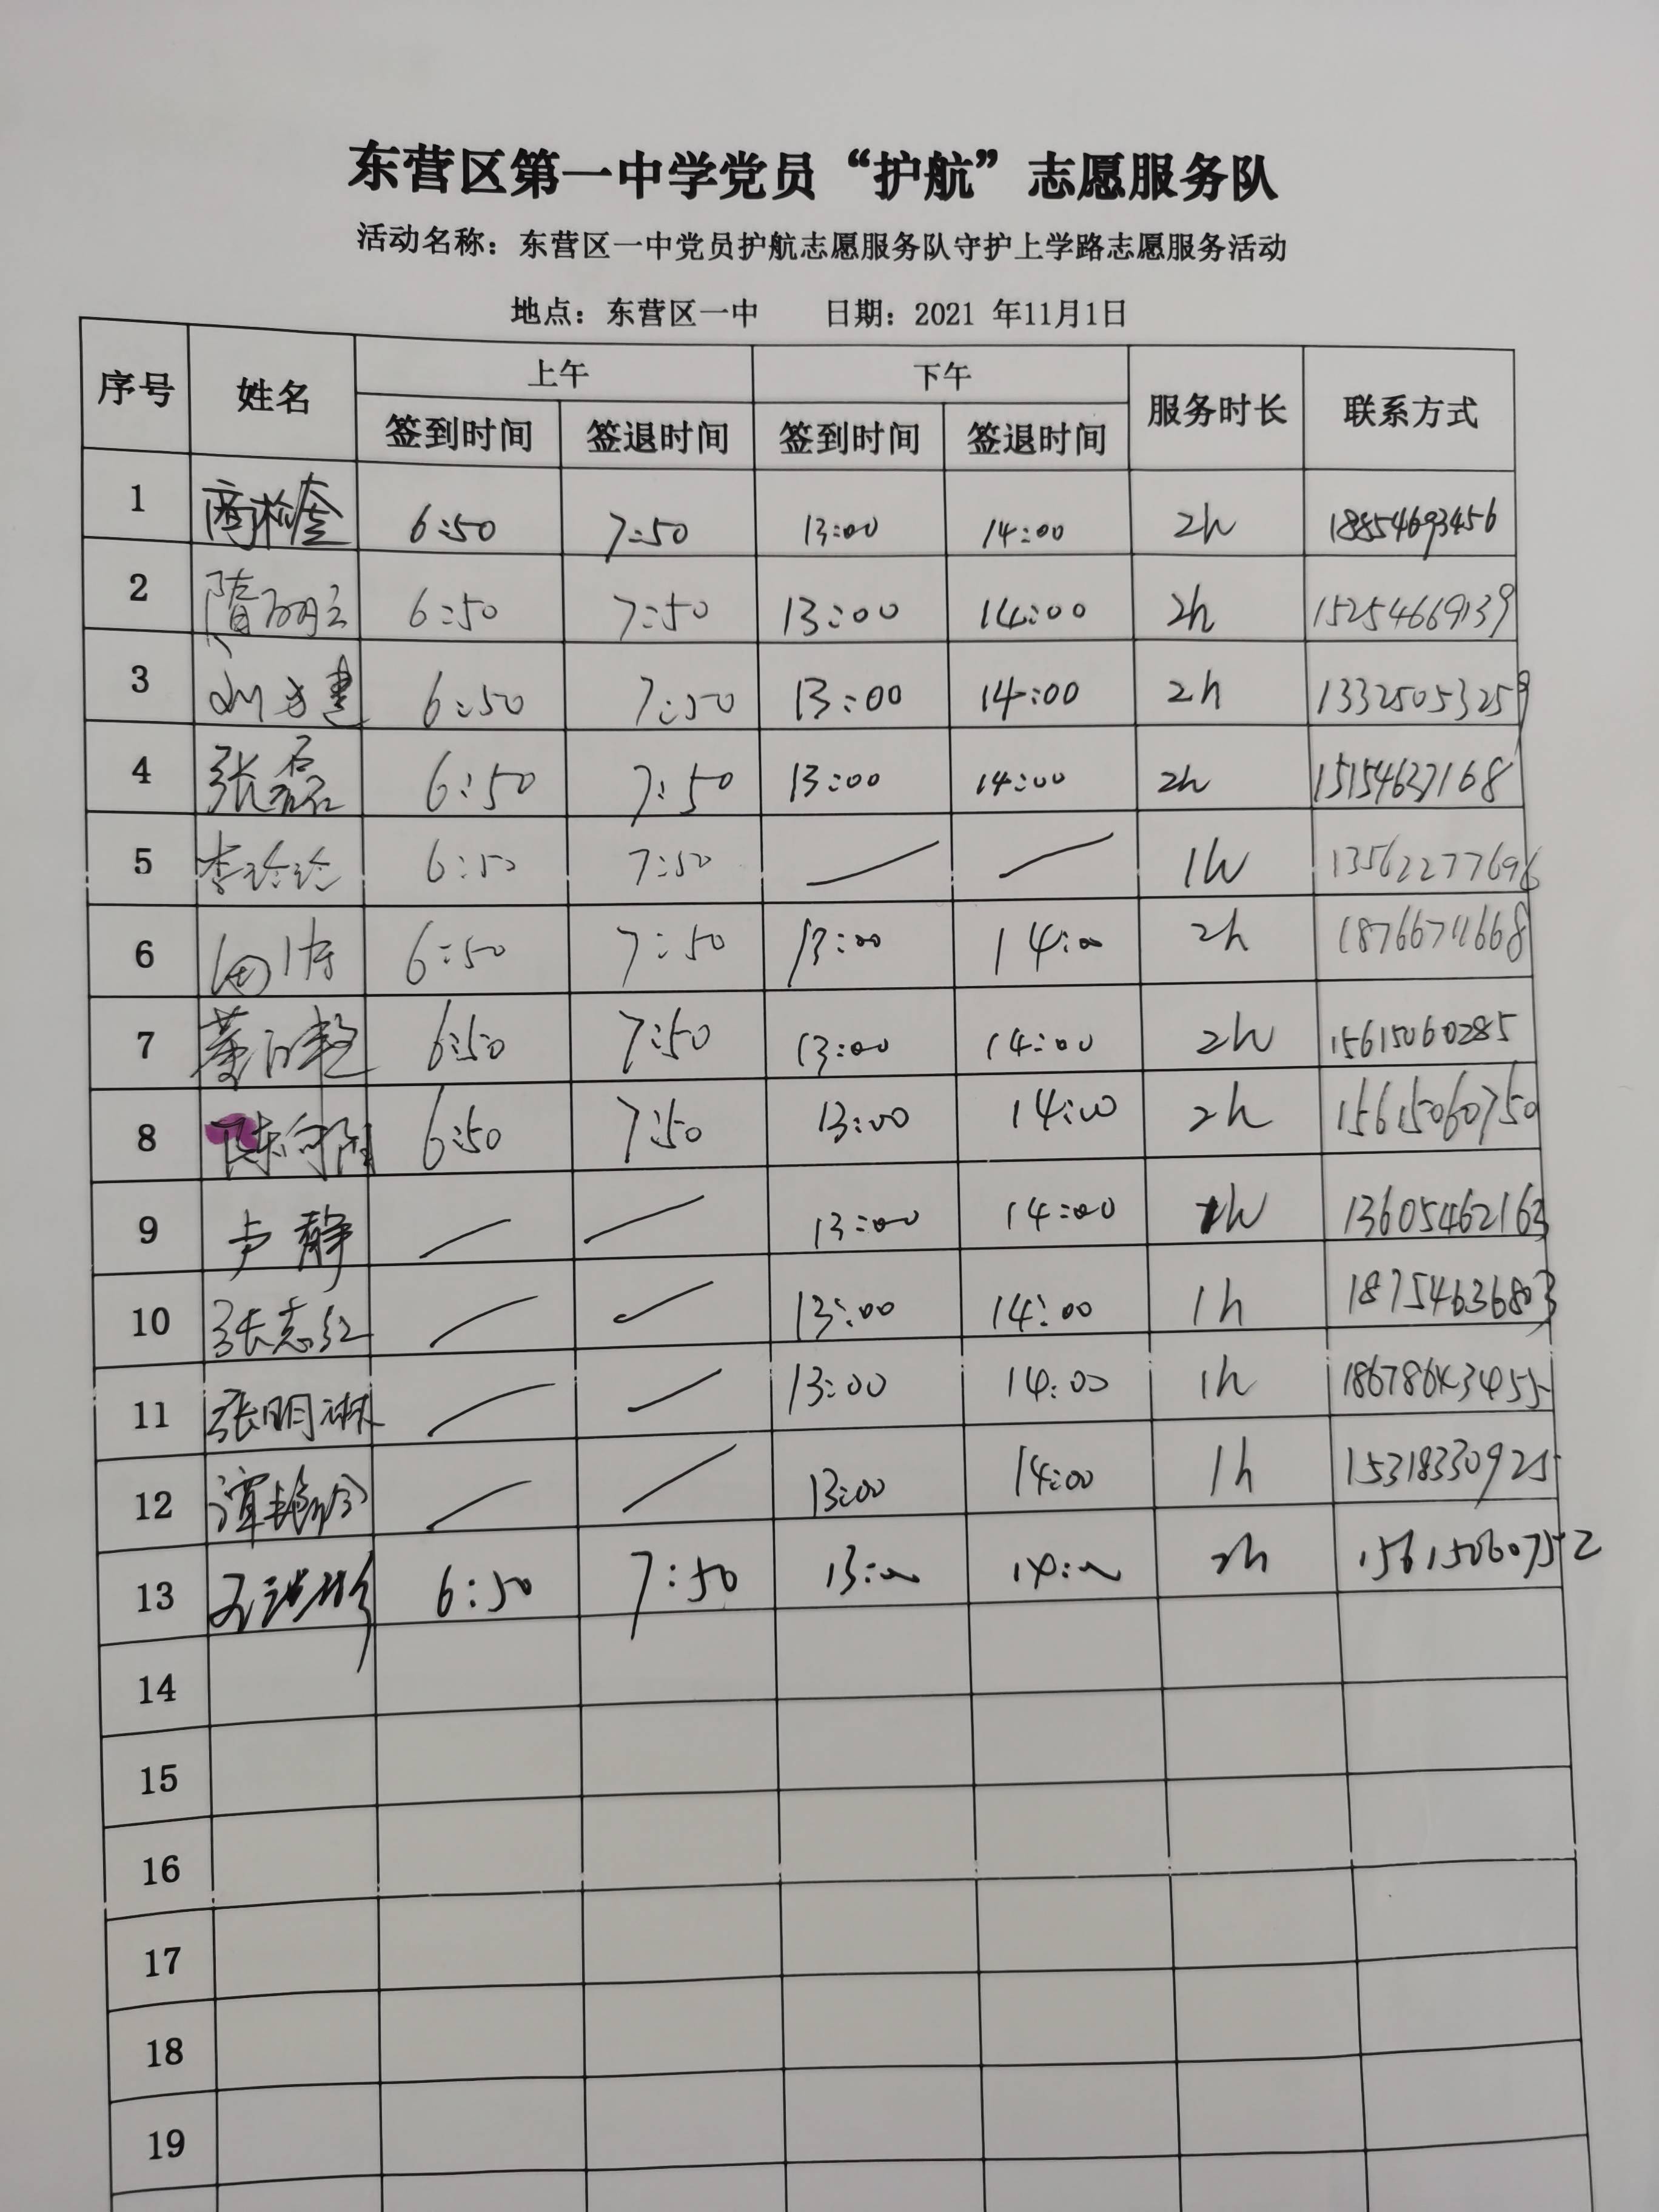 东营区第一中学党员“护航”志愿服务队
活动名称：东营区一中党员护航志愿服务队守护上学路志愿服务活动
地点：东营区一中 日期：2021 年11月1日
序号 姓名 上午 下午 服务时长 联系方式
签到时间 签退时间 签到时间 签退时间
1 6:50 7:50 13:00 14:00 2h 18854693456
2 隋 6:50 7:50 13:00 14:00 2h 15254669139
3 6:50 7:50 13:00 14:00 2h 13325053259
4 张磊 6:50 7:50 13:00 14:00 2h 15154637168
5 李玲玲 6:50 7:50 1h 13562277696
6 6:50 7:50 13:00 14:00 2h
7 6:50 7:50 13:00 14:00 2h 15615060285
8 陈向阳 6:50 7:50 13:00 14:00 2h 15615060750
9 卢静 13:00 14:00 1h 13605462163
10 张志红 13:00 14:00 1h 18754636803
11 张明琳 13:00 14:00 1h
12 13:00 14:00 1h 15318330925
13 6:50 7:50 13:00 14:00 2h 15615060752
14
15
16
17
18
19